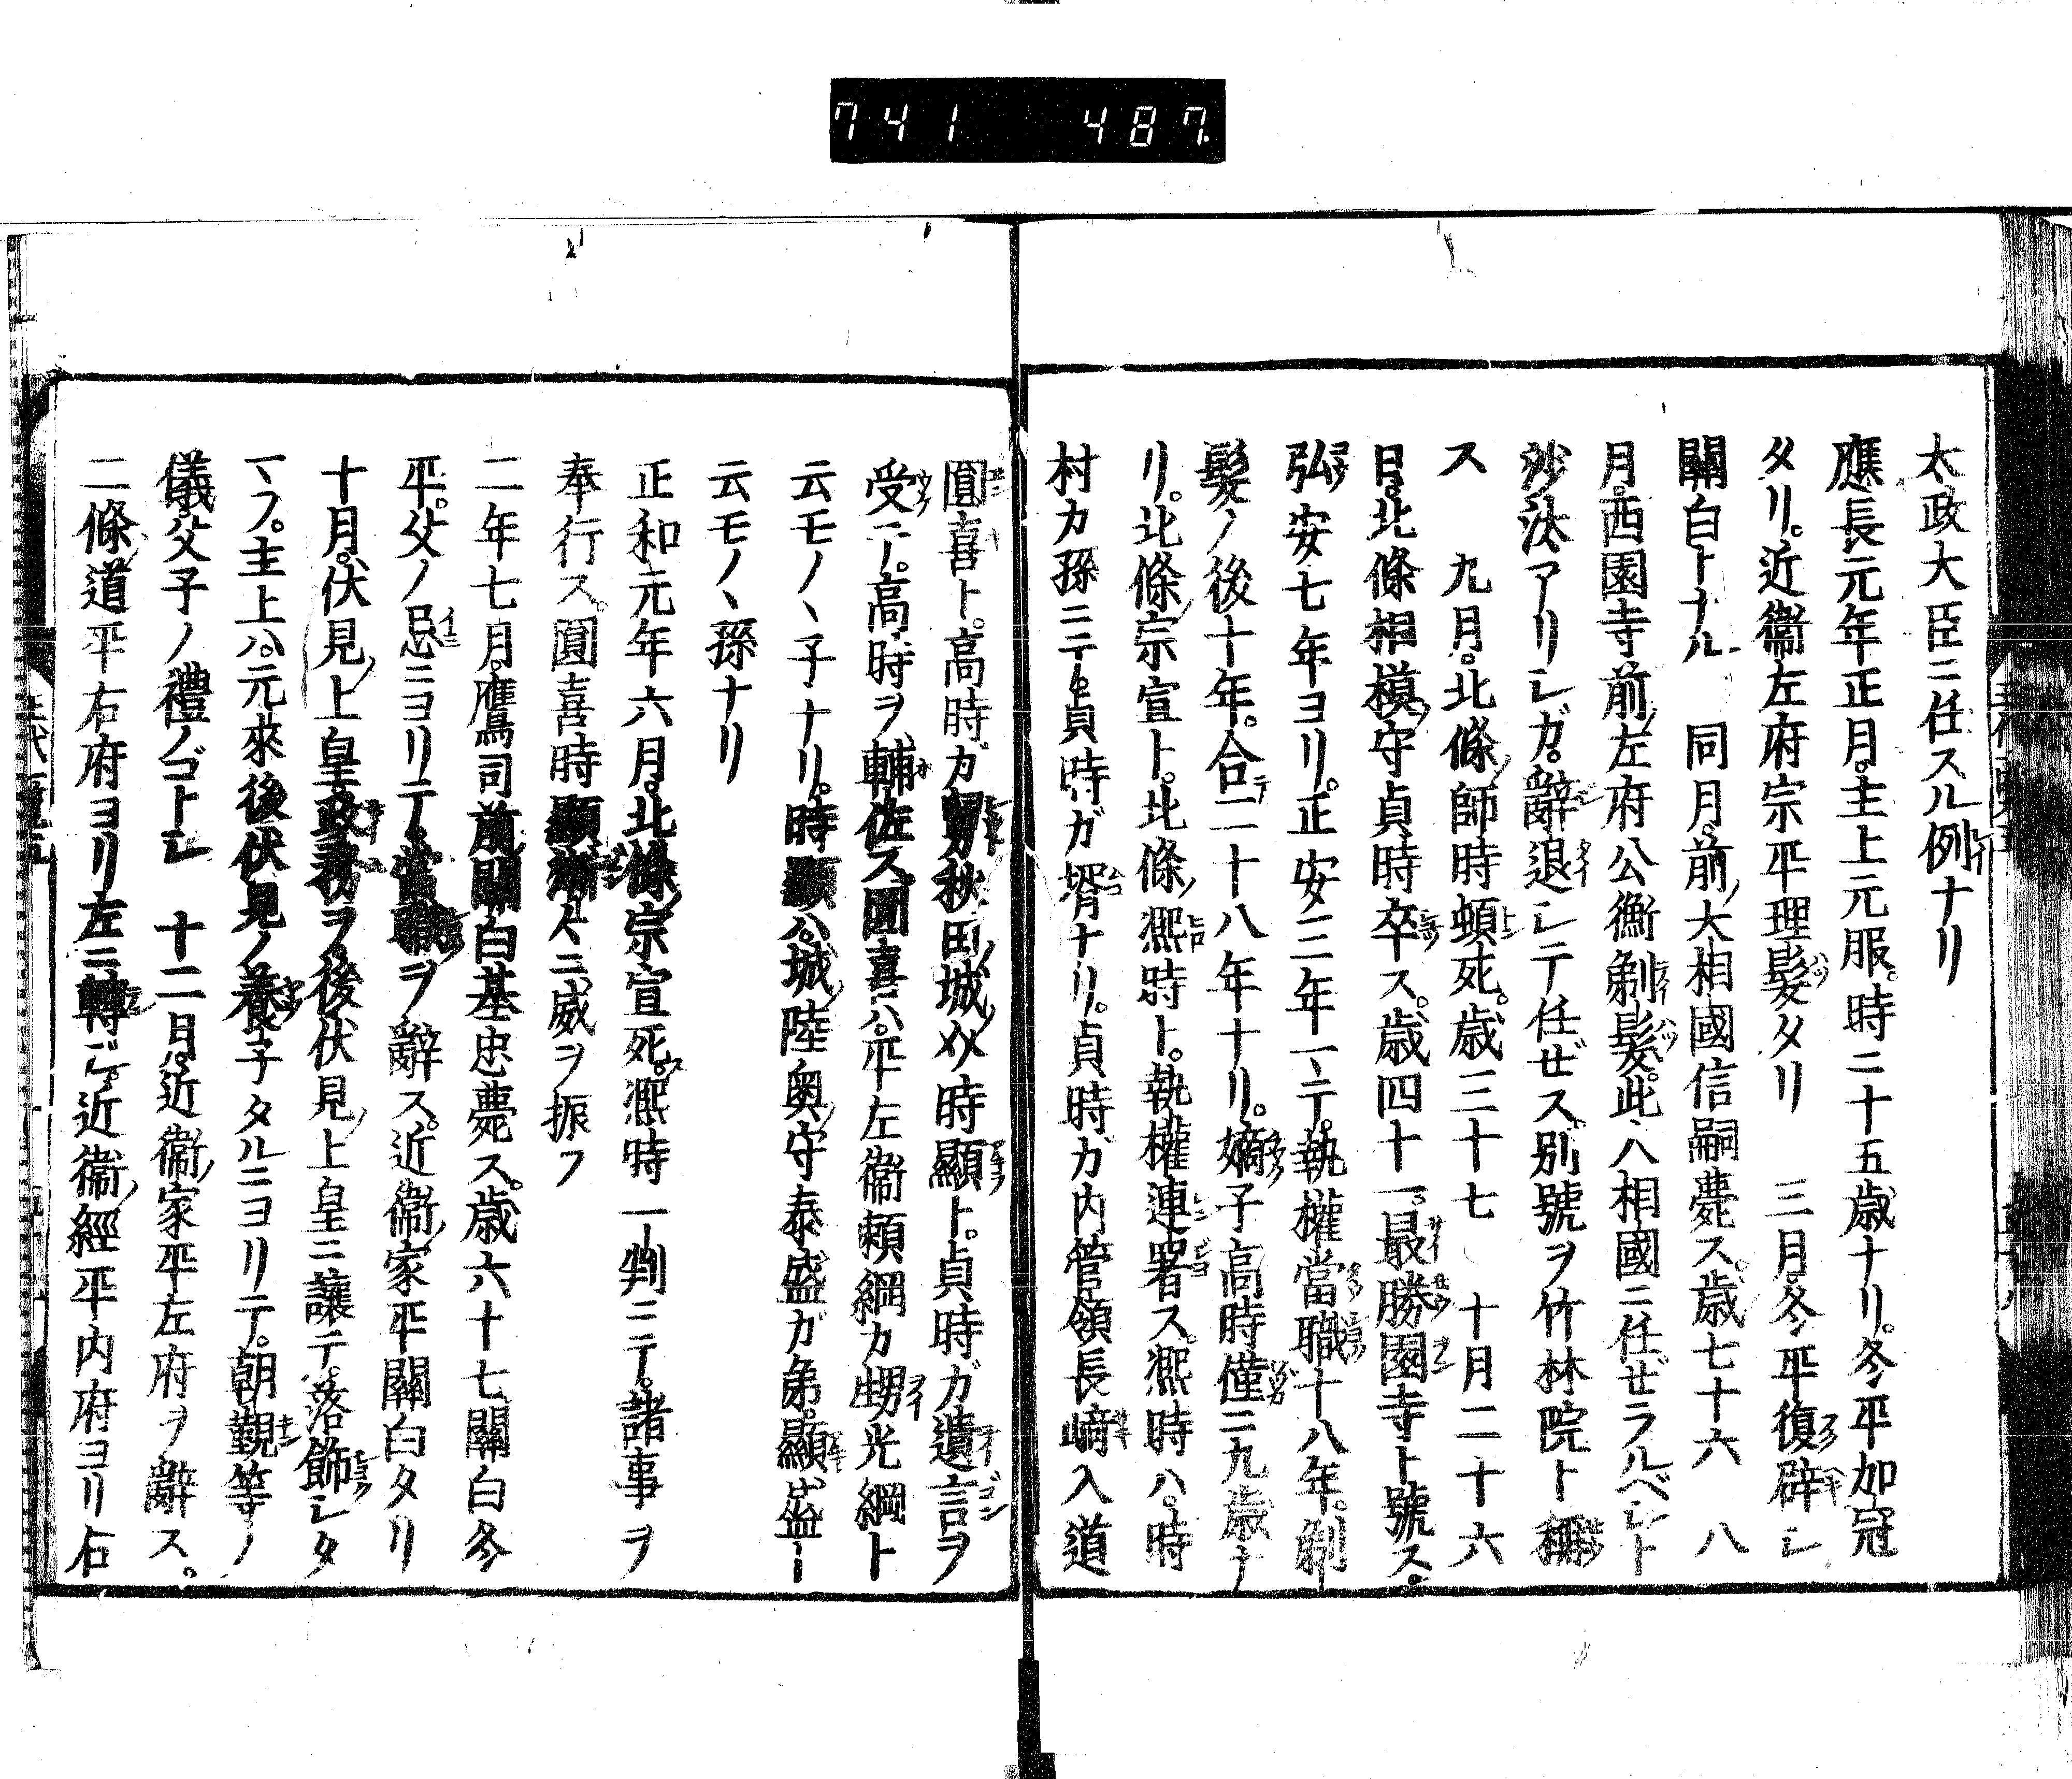 741 487
太政大臣ニ任スル例ナリ
應長元年正月。主上元服。時ニ十五歳ナリ。冬平加冠
タリ。近衞左府宗平理髪タリ 三月。冬平復辟シ
關白トナル 同月。前ノ大相國信嗣薨ス。歳七十六 八
月。西園寺前ノ左府公衡剃髪。此人相國ニ任ゼラルベシト
沙汰アリシガ。辭退シテ任ゼス。別號ヲ竹林院ト稱
ス 九月。北條ノ師時頓死。歳三十七 十月二十六
日。北條相模ノ守貞時卒ス。歳四十一。最勝園寺ト號ス。
弘安七年ヨリ。正安三年マテ。執權當職十八年。剃
髮ノ後十年。合テ二十八年ナリ。嫡子高時僅ニ九歳ナ
リ。北條ノ宗宣ト。北條ノ凞時ト。執權連署ス。凞時ハ。時
村カ孫ニテ。貞時ガ壻ナリ。貞時ガ内管領長崎入道
圓喜ト。高時ガ舅秋田ノ城ノ介時顯ト。貞時ガ遺言ヲ
受テ。高時ヲ輔佐ス。圓喜ハ。平左衞頼綱カ甥光綱ト
云モノヽ子ナリ。時顯ハ。城ノ陸奥ノ守泰盛ガ弟。顯盛ト
云モノヽ孫ナリ
正和元年六月。北條ノ宗宣死ス。凞時一判ニテ。諸事ヲ
奉行ス。圓喜時顯漸ク二威ヲ振フ
二年七月。鷹司前ノ關白基忠薨ス。歳六十七關白冬
平。父ノ忌ニヨリテ。當職ヲ辭ス。近衞ノ家平關白タリ
十月。伏見ノ上皇。政務ヲ。後伏見ノ上皇ニ讓テ。落飾シタ
マフ。主上ハ。元來後伏見ノ養子タルニヨリテ。朝覲等ノ
儀。父子ノ禮ノゴトシ 十二月。近衞ノ家平左府ヲ辭ス。
二條ノ道平右府ヨリ左ニ轉ジ。近衞ノ經平内府ヨリ右